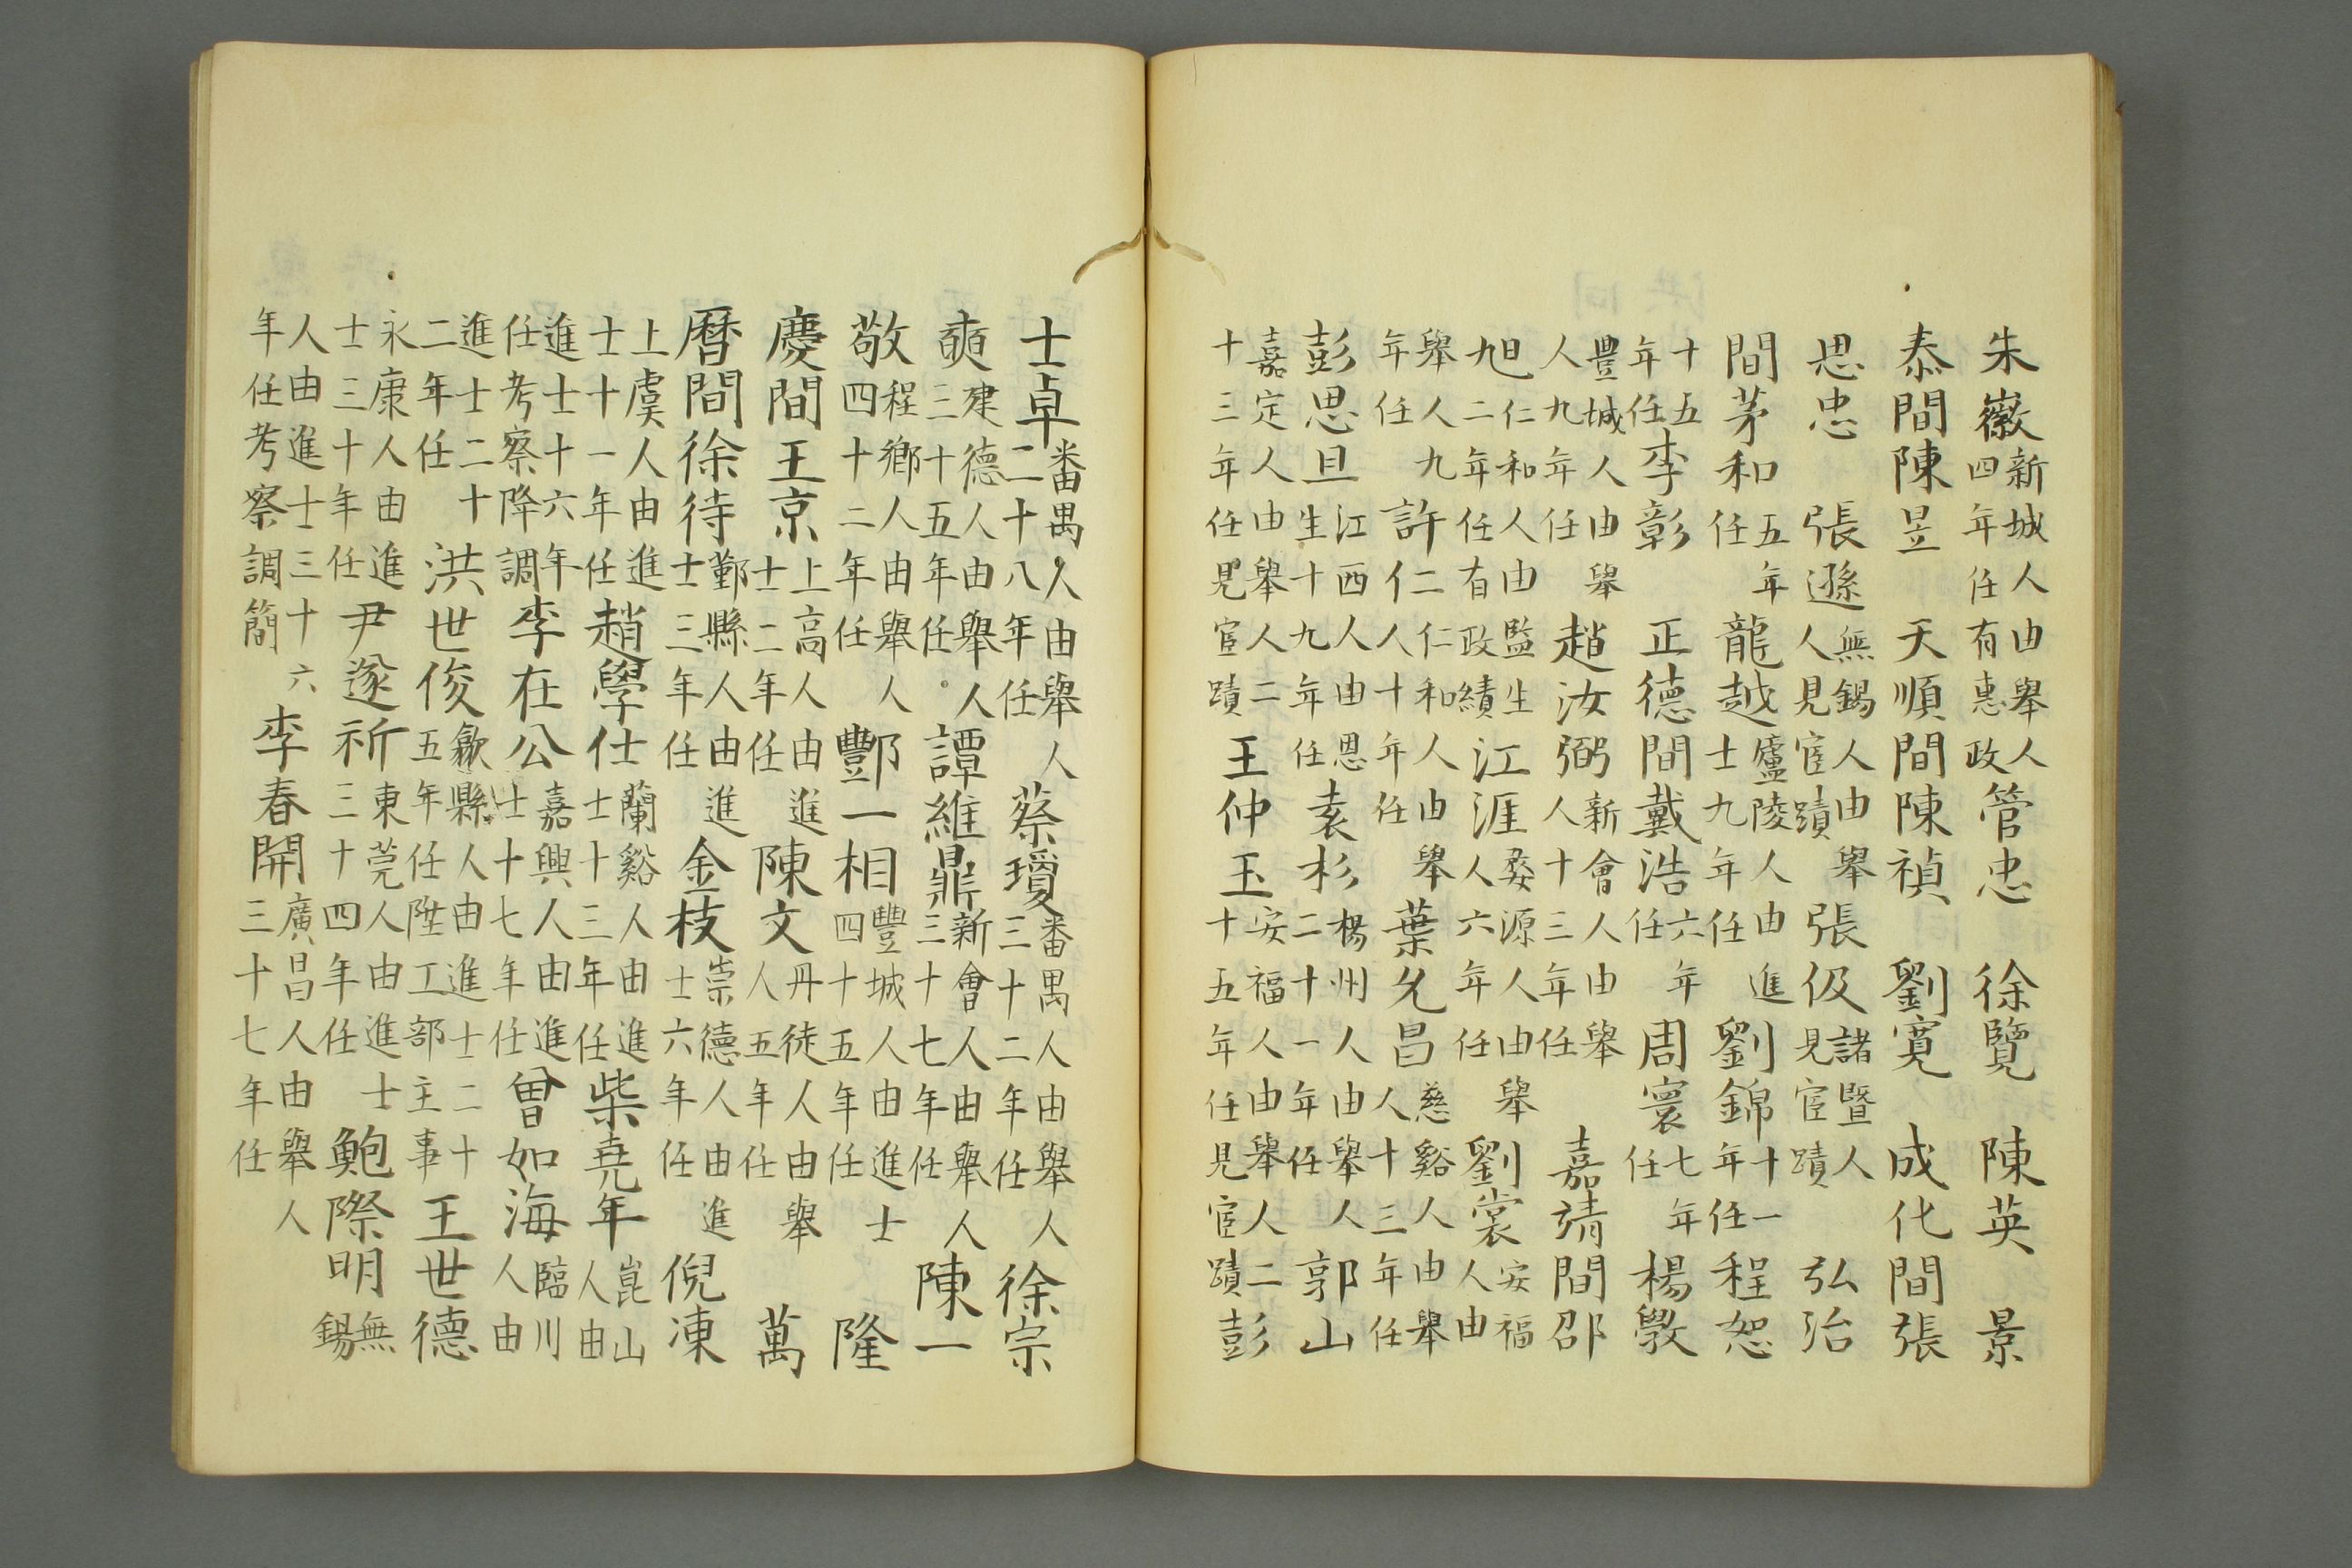 朱徽新城人由舉人四年任有惠政管忠　徐覽　陳英　景
泰間陳昱　天順間陳禎　劉寬　成化間張
思忠　張遜無錫人由舉人見宦蹟張伋諸暨人見宦蹟　弘治
間茅和五年任龍越廬陵人由進士九年任劉錦十一年任程恕
十五年任李彰　正德間戴浩六年任周寰七年任楊斅
豐城人由舉人九年任趙汝弼新會人由舉人十三年任　嘉靖間邵
旭仁和人由監生九二年任有政績江涯婺源人由舉人六年任劉裳安福人由
舉人九年任許仁仁和人由舉二人十年任葉允昌慈谿人由舉人十三年任
彭思旦江西人由恩生十九年任袁杉楊州人由舉人二十一年任郭山
嘉定人由舉人二十三年任見宦蹟王仲玉安福人由舉人二十五年任見宦蹟彭
士卓番禺人由舉人二十八年任蔡瓊番禺人由舉人三十二年任徐宗
奭建德人由舉人三十五年任譚維鼎新會人由舉人三十七年任陳一
敬程鄉人由舉人四十二年任酆一相豐城人由進士四十五年任　隆
慶間王京上高人由進士二年任陳文丹徒人由舉人五年任　萬
曆間徐待鄞縣人由進士三年任金枝崇德人由進士六年任倪涷
上虞人由進士十一年任趙學仕蘭谿人由進士十三年任柴堯年崑山人由
進士十六年任考察降調李在公嘉興人由進士十七年任曾如海臨川人由
進士二十二年任洪世俊歙縣人由進士二十五年任陞工部主事王世德
永康人由進士三十年任尹遂祈東莞人由進士三十四年任鮑際明無錫
人由進士三十六年任考察調簡李春開廣昌人由舉人三十七年任